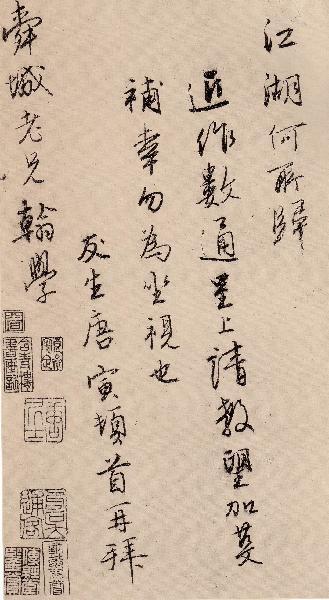 江湖何所歸
近作數通呈上請教望加芟
補幸勿為坐視也
友生唐寅頓首再拜
舜城老兄翰學